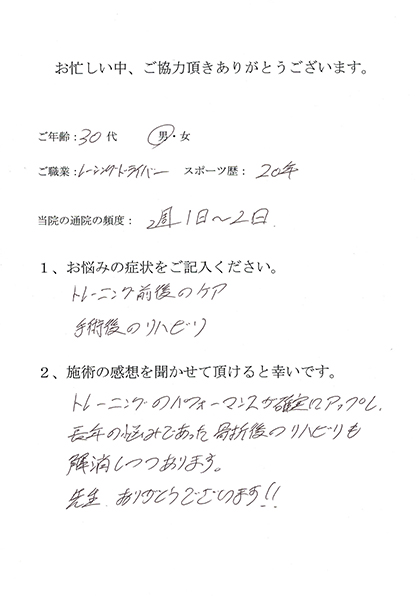 お忙しい中、ご協力頂きありがとうございます。
ご年齢：30代 男・女
ご職業：レーシングドライバー スポーツ歴：20年
当院の通院の頻度：週1日～2日
1、お悩みの症状をご記入ください。
トレーニング前後のケア
手術後のリハビリ
2、施術の感想を聞かせて頂けると幸いです。
トレーニングのパフォーマンスが確実にアップし、
長年の悩みであった骨折後のリハビリも
解消しつつあります。
先生 ありがとうございます!!